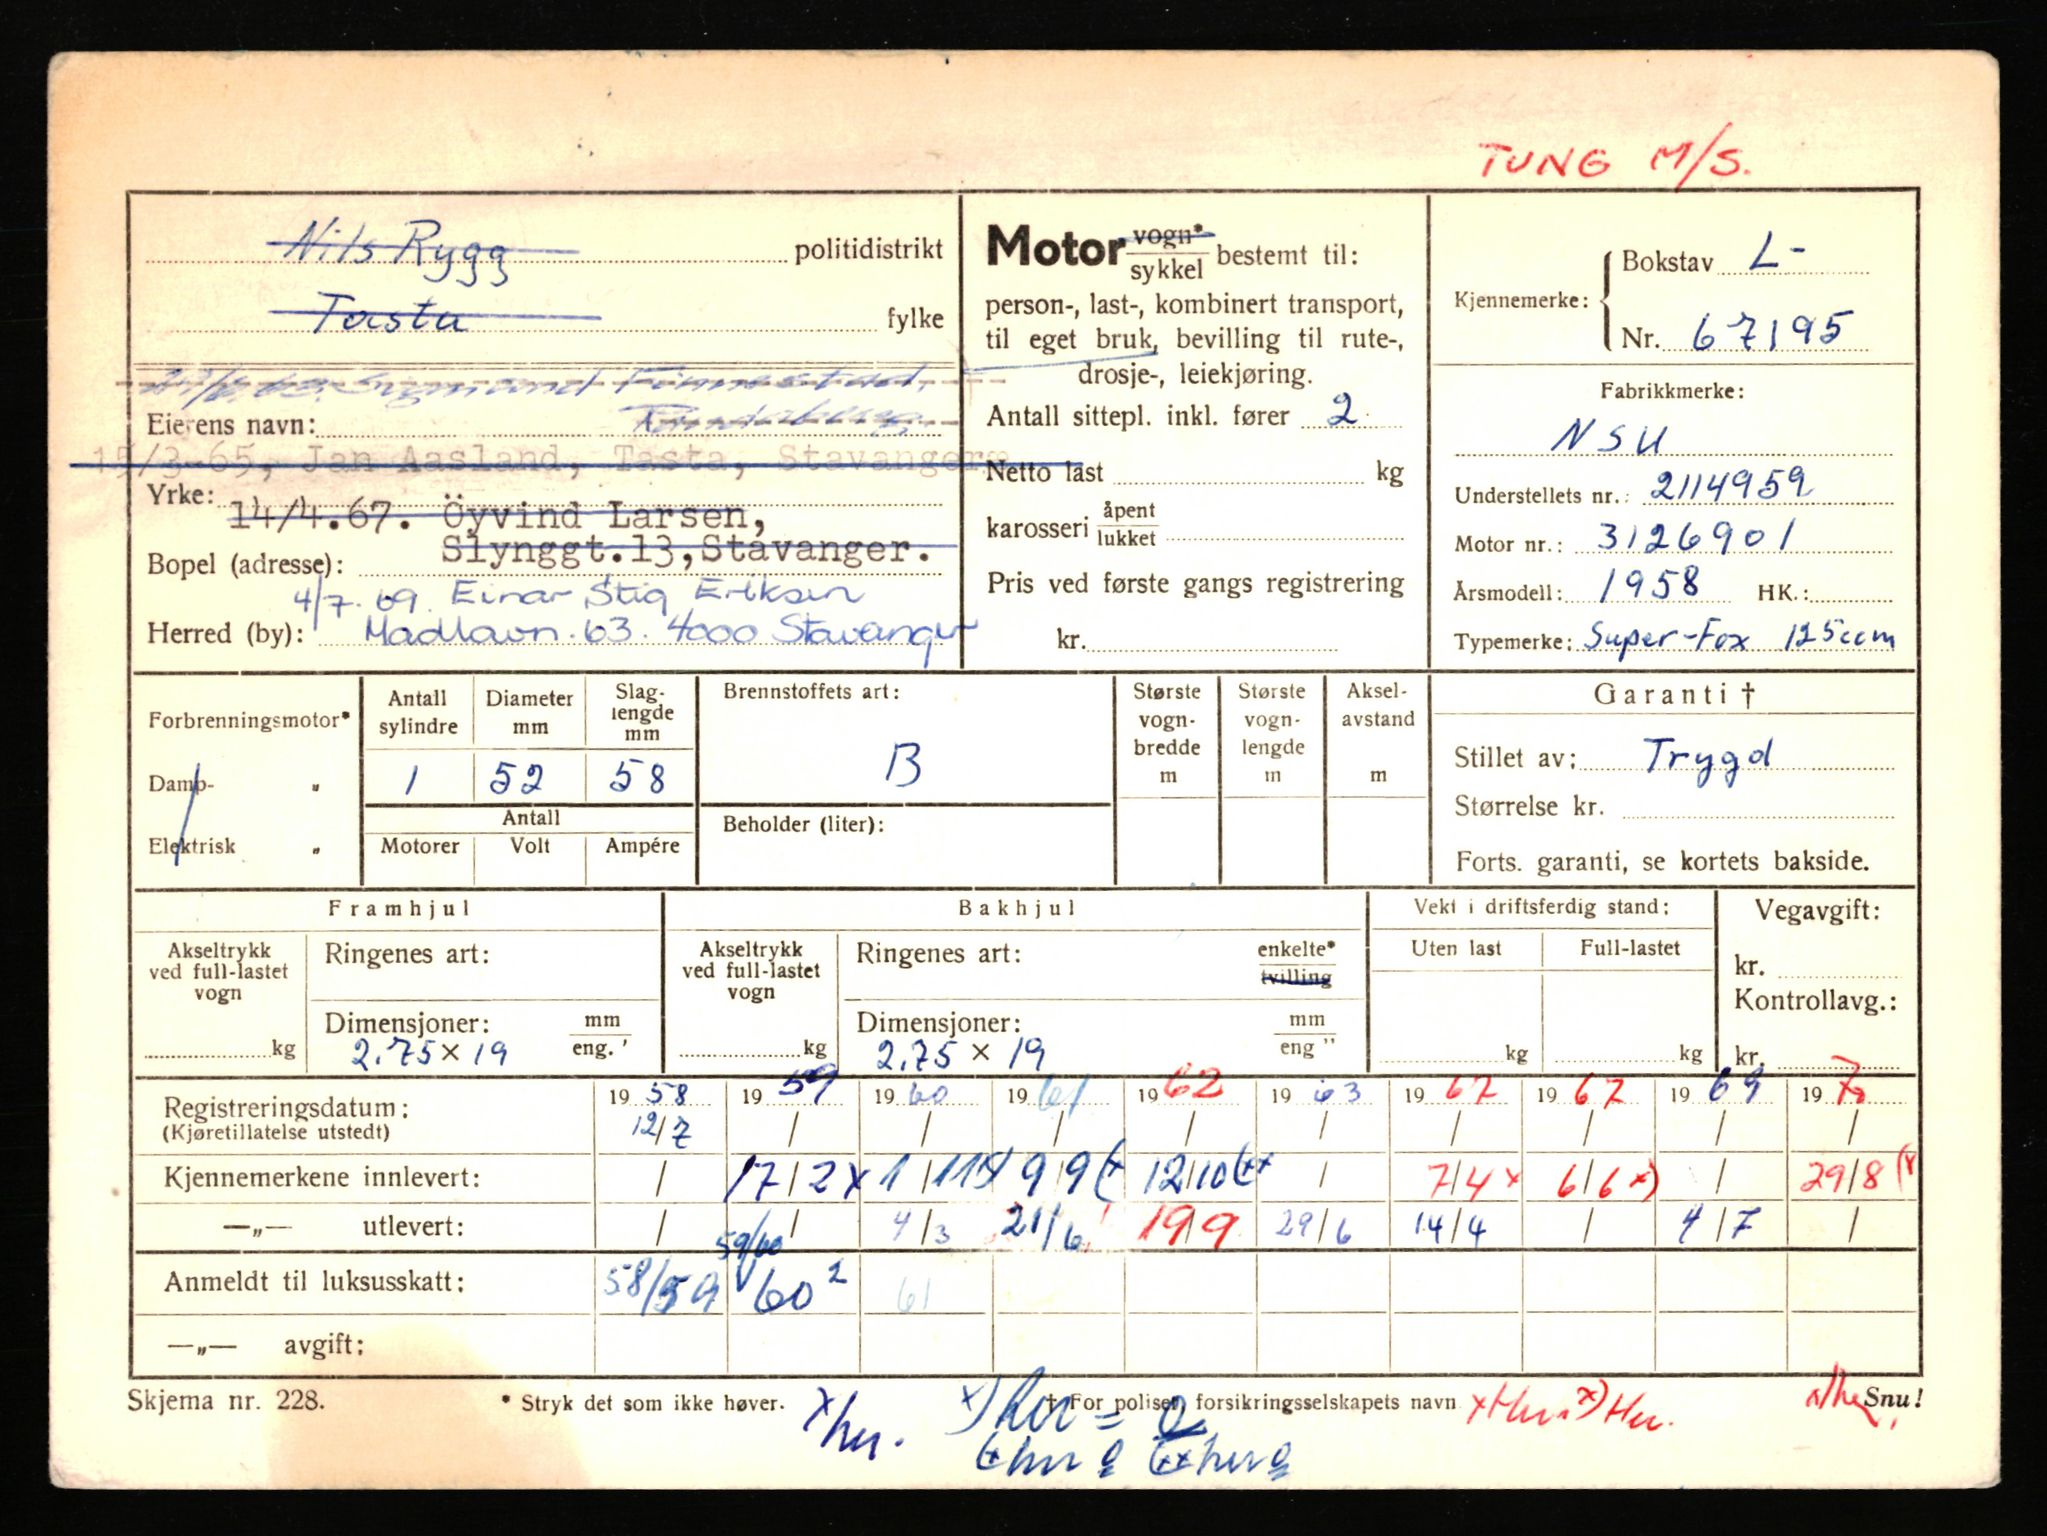 TUNG M/S.
Nils Rygg politidistrikt
Tasta fylke
Sigmund Finnestad,
Eierens navn: Randaberg
15/3-65, Jan Aasland, Tasta, Stavanger
Yrke:
14/4.67. Öyvind Larsen,
Bopel (adresse): Slynggt.13, Stavanger.
4/7.69. Einar Stig Eriksen
Herred (by): Madlavn. 63. 4000 Stavanger
Motor vogn* / sykkel bestemt til:
person-, last-, kombinert transport,
til eget bruk, bevilling til rute-,
drosje-, leiekjøring.
Antall sittepl. inkl. fører 2
Netto last kg
karosseri åpent / lukket
Pris ved første gangs registrering
kr.
Kjennemerke: Bokstav L-
Nr. 67195
Fabrikkmerke:
NSU
Understellets nr.: 2114959
Motor nr.: 3126901
Årsmodell: 1958 HK.:
Typemerke: Super-Fox 125ccm
Forbrenningsmotor*
Damp- "
Elektrisk "
Antall sylindre Diameter mm Slaglengde mm
1 52 58
Antall
Motorer Volt Ampére
Brennstoffets art:
B
Beholder (liter):
Største vognbredde m
Største vognlengde m
Akselavstand m
Garanti †
Stillet av: Trygd
Størrelse kr.
Forts. garanti, se kortets bakside.
Framhjul
Akseltrykk ved full-lastet vogn kg
Ringenes art:
Dimensjoner: mm / eng. '
2.75 x 19
Bakhjul
Akseltrykk ved full-lastet vogn kg
Ringenes art: enkelte* / tvilling
Dimensjoner: mm / eng "
2.75 x 19
Vekt i driftsferdig stand:
Uten last Full-lastet
kg kg
Vegavgift:
kr.
Kontrollavg.:
kr.
Registreringsdatum: 1958 1959 1960 1961 1962 1963 1967 1967 1969 1970
(Kjøretillatelse utstedt) 12/7 / / / / / / / / /
Kjennemerkene innlevert: / 17/2 x 1/11 9/9 (x 12/10 (xx / 7/4 x 6/6 x) / 29/8 (x
—„— utlevert: / / 4/3 21/6 19/9 29/6 14/4 / 4/7 /
59/60
Anmeldt til luksusskatt: 58/59 60² 61
—„— avgift:
Skjema nr. 228. * Stryk det som ikke høver. † For polisen, forsikringsselskapets navn Snu!